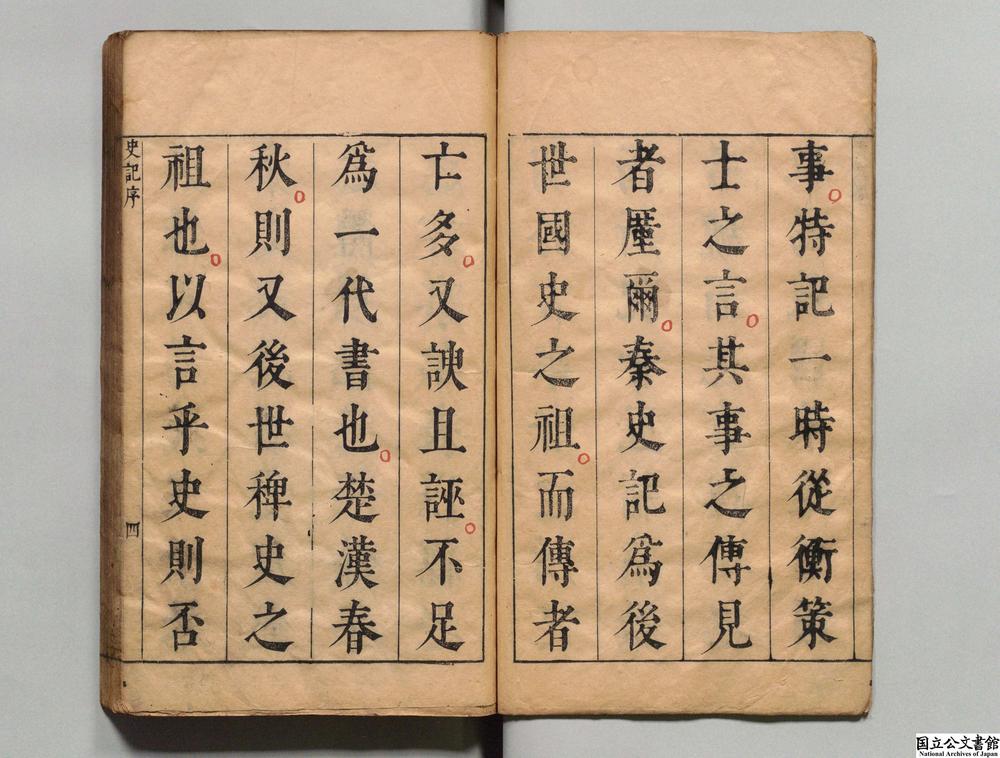 事特記一時從衡策
士之言其事之傳見
者厪爾秦史記爲後
世國史之祖而傳者
亡多又諛且誣不足
爲一代書也楚漢春
秋則又後世稗史之
祖也以言乎史則否
史記序
四
国立公文書館
National Archives of Japan